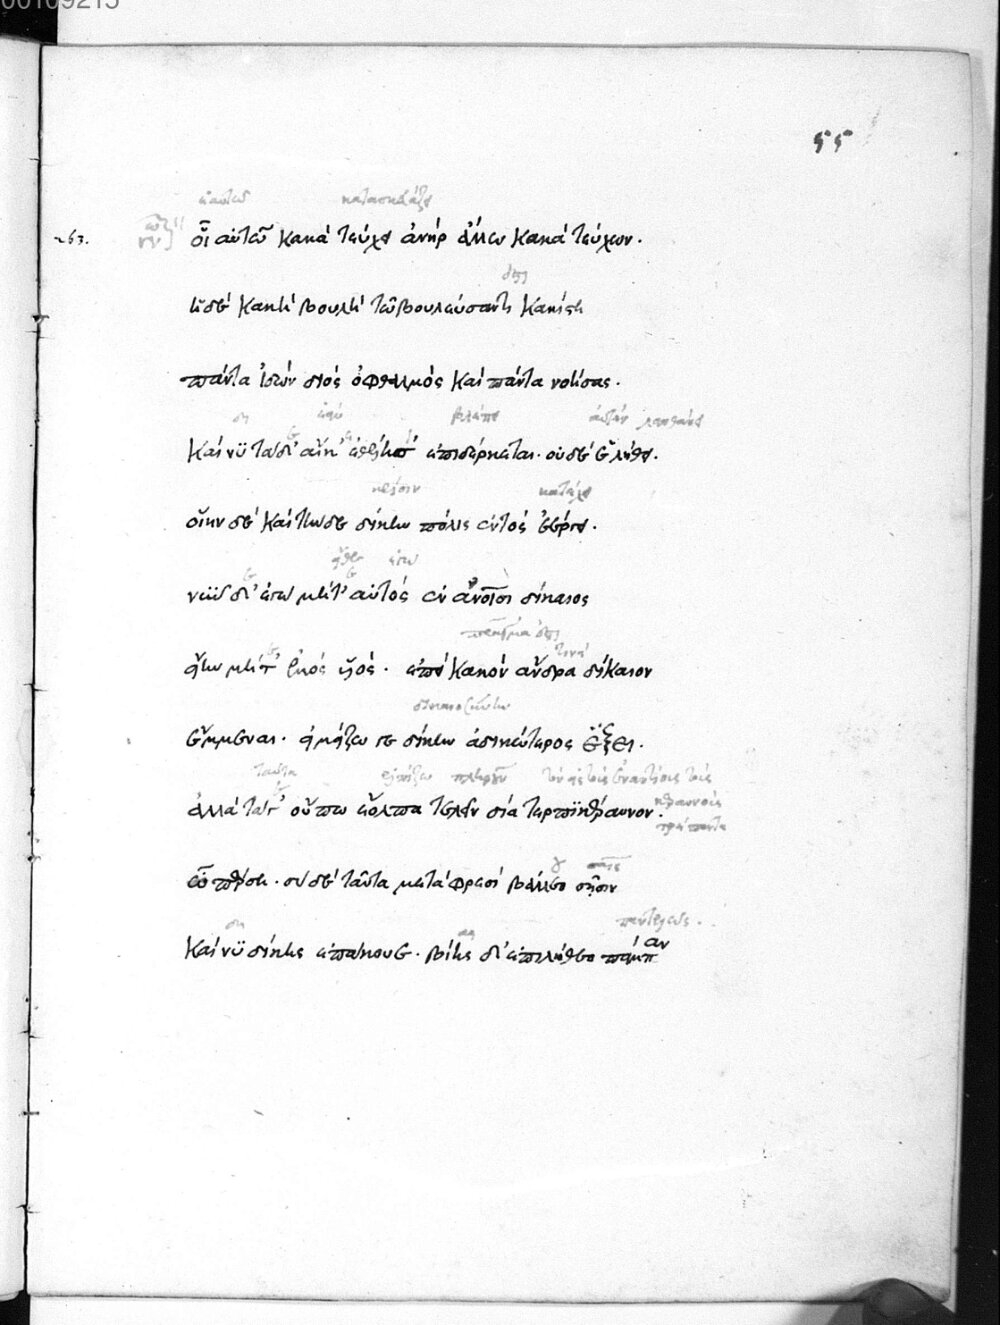 00109215
55
ἑαυτῶ κατασκευάζει
263. οἷ αὐτῶ κακὰ τεύχει ἀνὴρ ἄλλω κακὰ τεύχων.
ἡ δὲ κακὴ βουλὴ τῶ βουλεύσαντι κακίστη
πάντα ἰδὼν διὸς ὀφθαλμὸς καὶ πάντα νοήσας.
δὴ βλέπει αὐτὸν λανθάνει
καί νυ τάδ' αἴ κ' ἐθέλησ' ἐπιδέρκεται. οὐδέ ἑ λήθει.
κατέχει
οἵην δὲ καὶ τήνδε δίκην πόλις ἐντὸς ἐέργει.
νῦν δ' ἐγὼ μήτ' αὐτὸς ἐν ἀνθρώποισι δίκαιος
εἴην μήτ' ἐμὸς υἱός. ἐπεὶ κακὸν ἄνδρα δίκαιον
ἔμμεναι. εἰ μείζω γε δίκην ἀδικώτερος ἕξει.
ταῦτα ἐλπίζω
ἀλλὰ τά γ' οὔπω ἔολπα τελεῖν δία τερπικέραυνον.
κεραυνοῖς
τέρποντα
ὦ πέρση. σὺ δὲ ταῦτα μετὰ φρεσὶ βάλλεο σῆσιν
δὴ παντελῶς.
καί νυ δίκης ἐπάκουε. βίης δ' ἐπιλήθεο πάμπαν